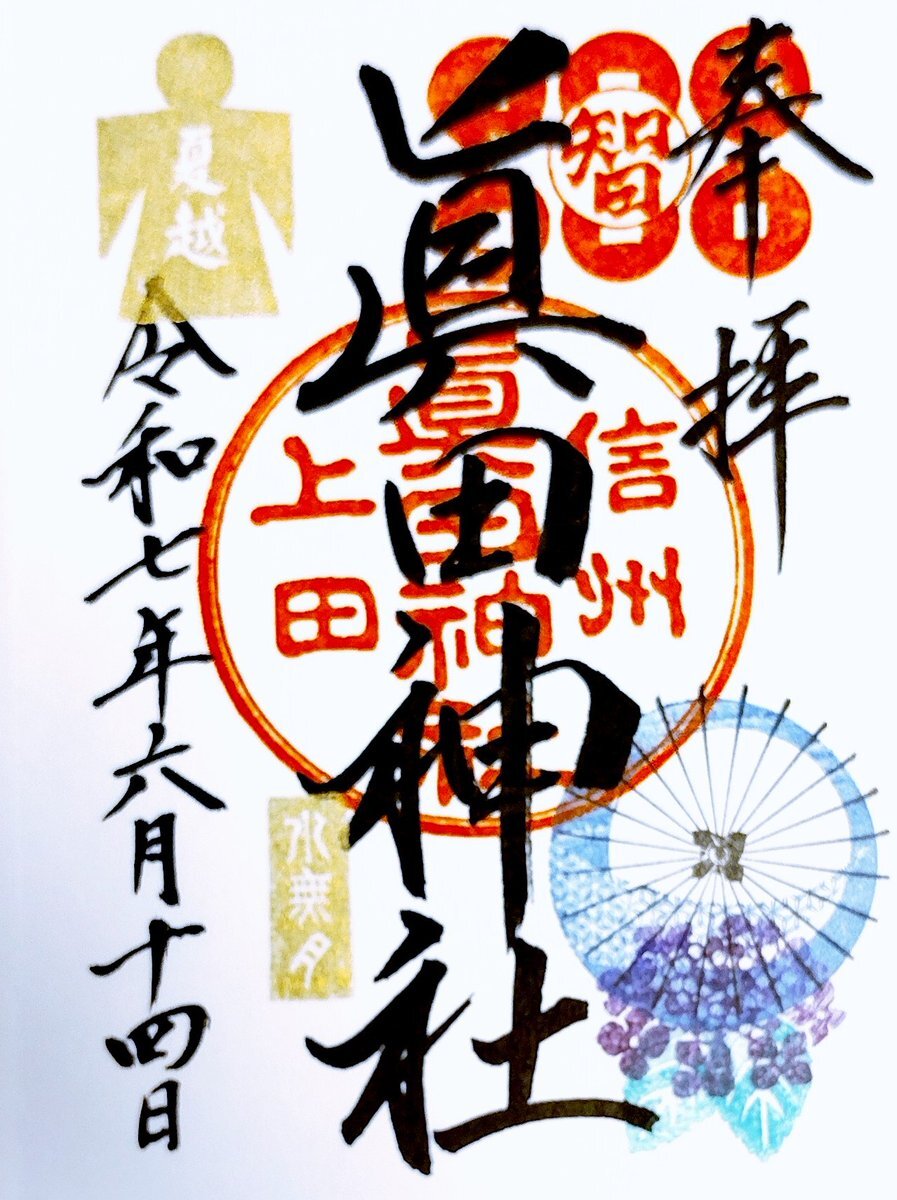 奉拝
智
眞田神社
信州
眞田神社
上田
夏越
水無月
令和七年六月十四日